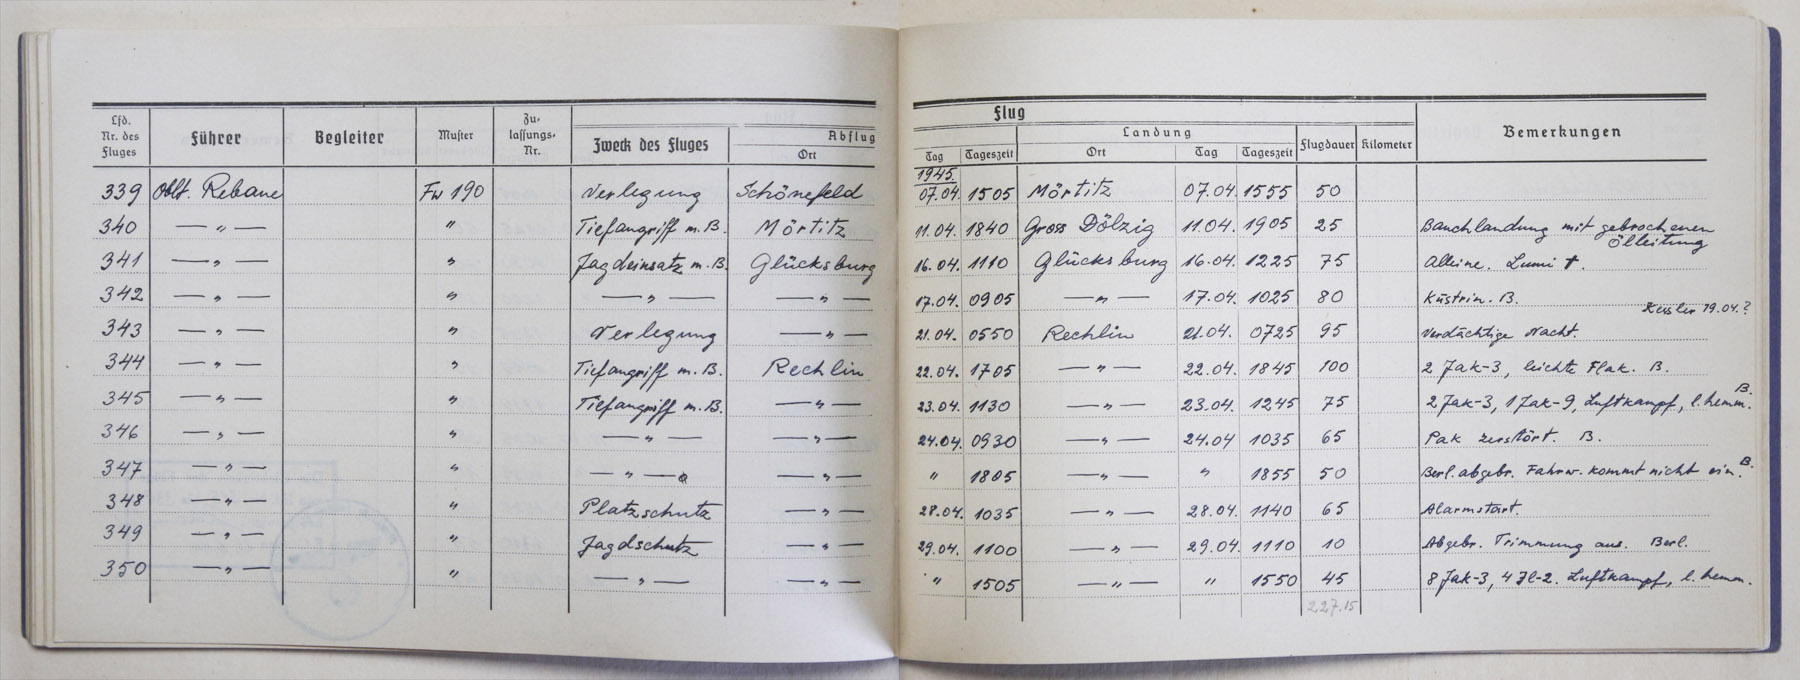 Flug
Lfd. Nr. des Fluges Führer Begleiter Muster Zulassungs-Nr. Zweck des Fluges Abflug Ort Tag Tageszeit Landung Ort Tag Tageszeit Flugdauer Kilometer Bemerkungen
1945.
339 Oblt. Rebane Fw 190 Verlegung Schönefeld 07.04. 1505 Mörtitz 07.04. 1555 50
340 — " — " Tiefangriff m. B. Mörtitz 11.04. 1840 Gross Dölzig 11.04. 1905 25 Bauchlandung mit gebrochenen
Ölleitung
341 — " — " Jagdeinsatz m. B. Glücksburg 16.04. 1110 Glücksburg 16.04. 1225 75 Alleine. Lumi †.
342 — " — " — " — — " — 17.04. 0905 — " — 17.04. 1025 80 Küstrin. B.
Kessler 19.04.?
343 — " — " Verlegung — " — 21.04. 0550 Rechlin 21.04. 0725 95 Verdächtige Nacht.
344 — " — " Tiefangriff m. B. Rechlin 22.04. 1705 — " — 22.04. 1845 100 2 Jak-3, leichte Flak. B.
345 — " — " Tiefangriff m. B. — " — 23.04. 1130 — " — 23.04. 1245 75 2 Jak-3, 1 Jak-9, Luftkampf, l. hemm. B.
346 — " — " — " — — " — 24.04. 0930 — " — 24.04 1035 65 Pak zerstört. B.
347 — " — " — " — — " — " 1805 — " — " 1855 50 Berl. abgebr. Fahrw. kommt nicht ein. B.
348 — " — " Platzschutz — " — 28.04. 1035 — " — 28.04. 1140 65 Alarmstart.
349 — " — " Jagdschutz — " — 29.04. 1100 — " — 29.04. 1110 10 Abgebr. Trimmung aus. Berl.
350 — " — " — " — — " — " 1505 — " — " 1550 45 8 Jak-3, 4 Il-2. Luftkampf, l. hemm.
227.15